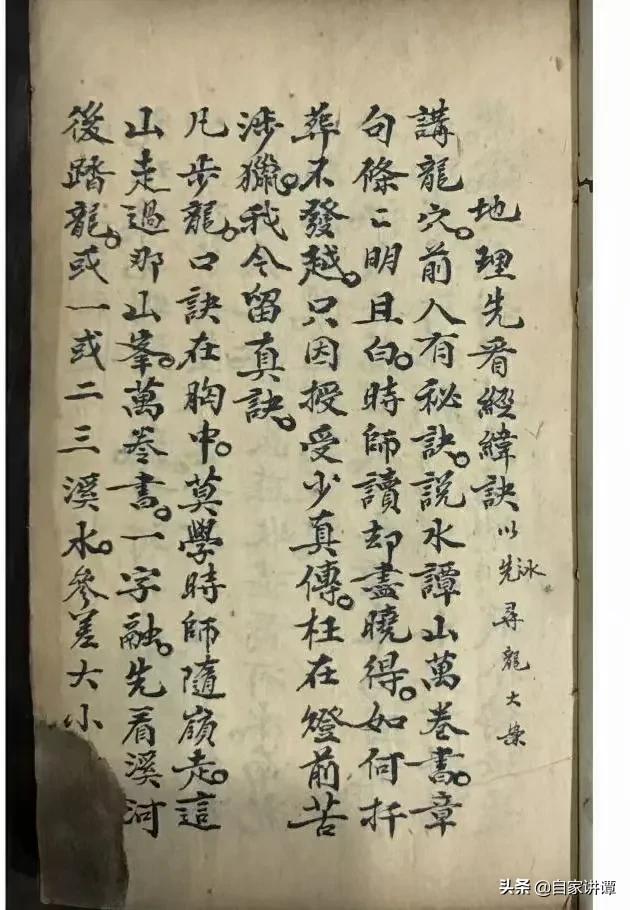 地理先看經緯訣 以先詠尋龍大葉
講龍穴。前人有秘訣。說水譚山萬卷書。章
句條〻明且白。時師讀却盡曉得。如何扦
葬不發越。只因授受少真傳。枉在燈前苦
涉獵。我今留真訣。
凡步龍。口訣在胸中。莫學時師隨嶺走。這
山走過那山峯。萬卷書。一字融。先看溪河
後踏龍。或一或二三溪水。參差大小
头条 @自家讲谭